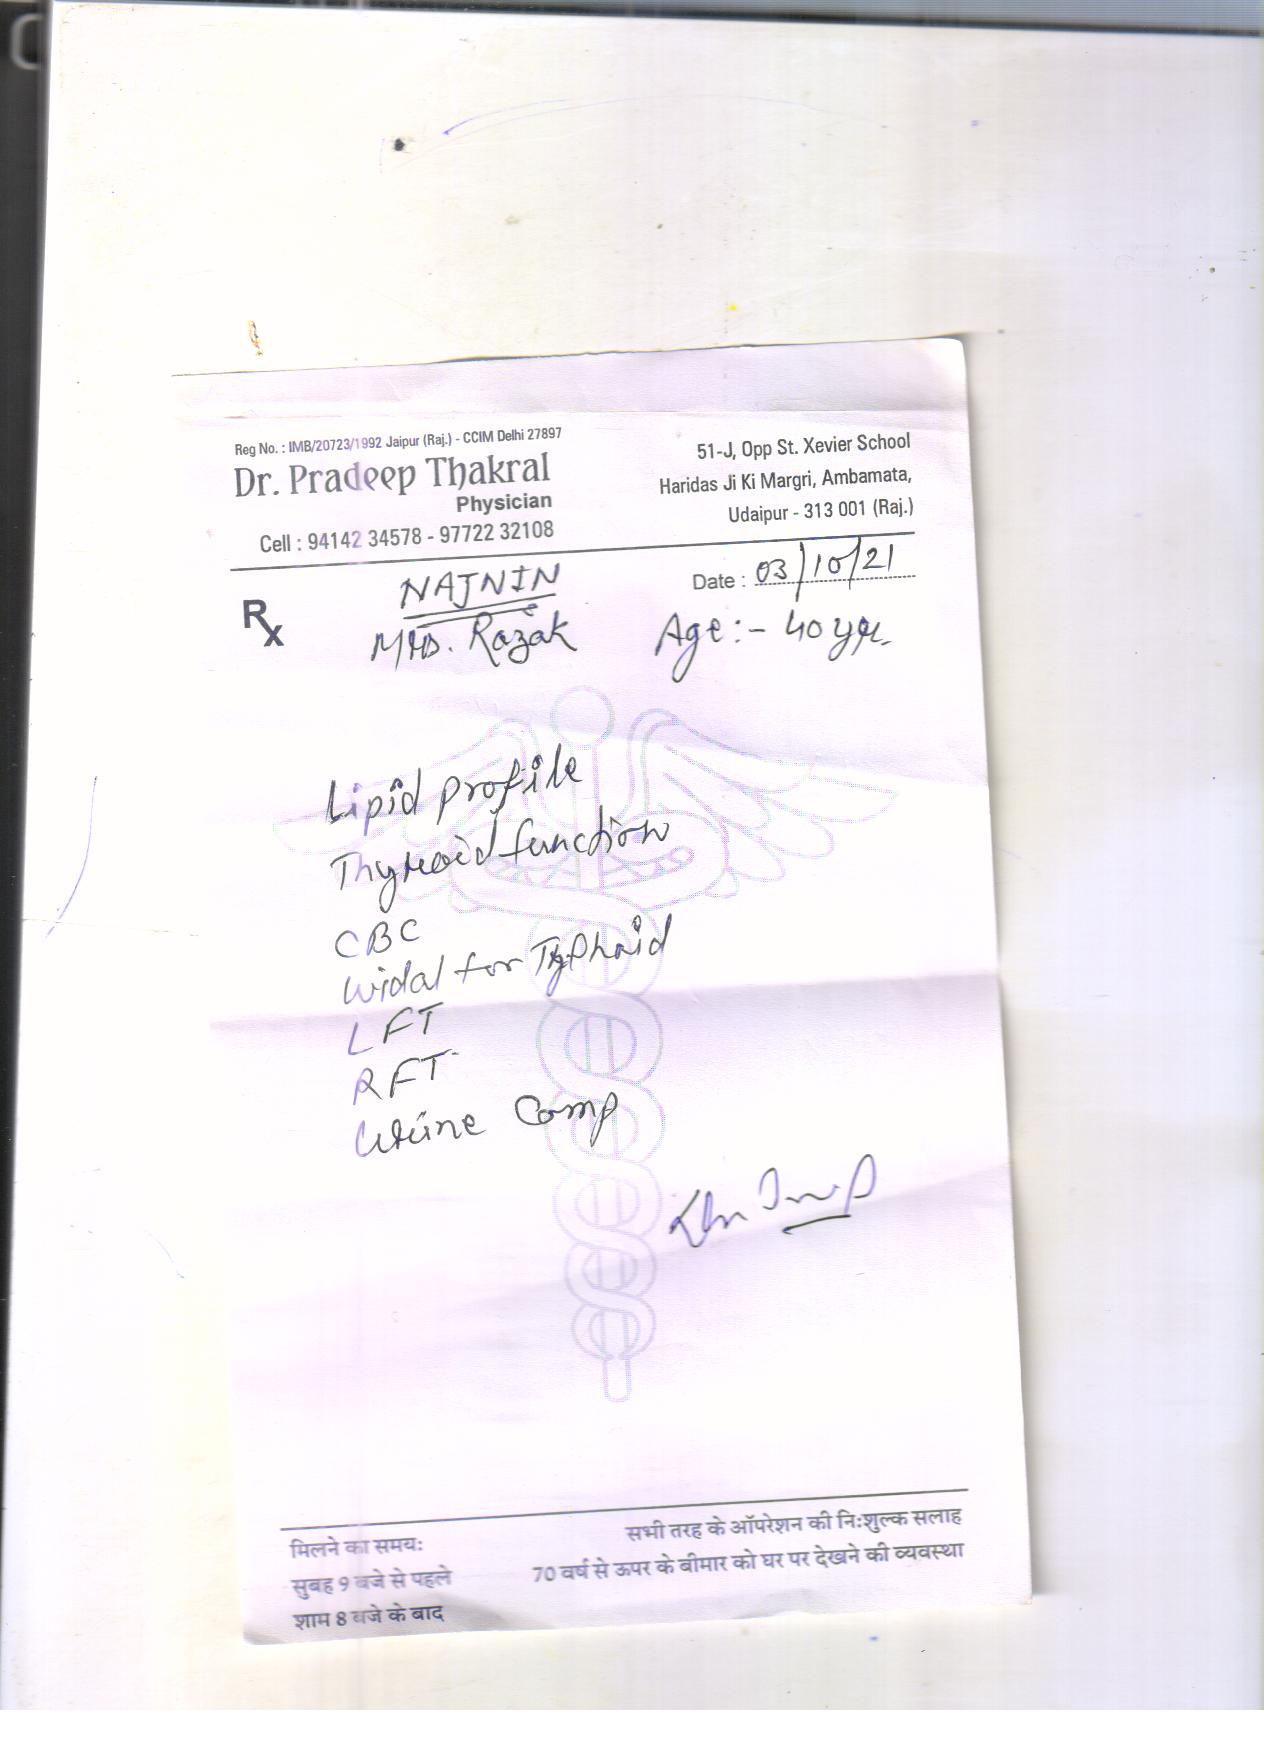 Reg No. : IMB/20723/1992 Jaipur (Raj.) - CCIM Delhi 27897
Dr. Pradeep Thakral
Physician
Cell : 94142 34578 - 97722 32108
51-J, Opp St. Xevier School
Haridas Ji Ki Margri, Ambamata,
Udaipur - 313 001 (Raj.)
Date : 03/10/21
Rx
NAJNIN
Razak
Age :- 40
Lipid Profile
Thyroid function
CBC
Widal for Typhoid
LFT
RFT
Urine Comp
मिलने का समय:
सुबह 9 बजे से पहले
शाम 8 बजे के बाद
सभी तरह के ऑपरेशन की नि:शुल्क सलाह
70 वर्ष से ऊपर के बीमार को घर पर देखने की व्यवस्था